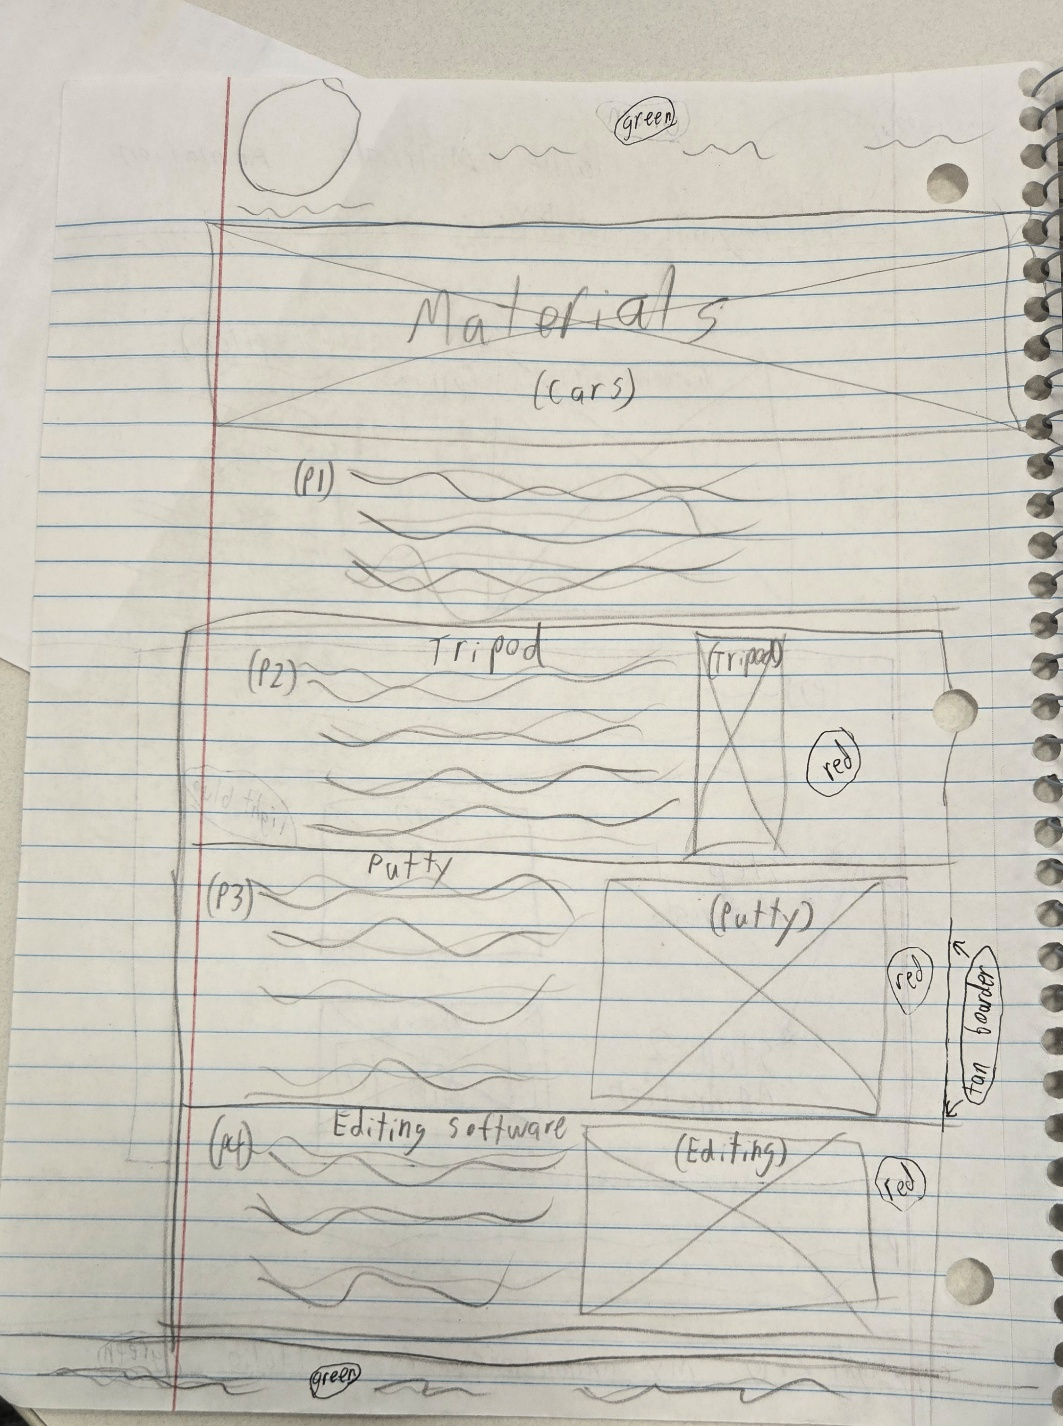 green
Materials
(Cars)
(P1)
Tripod
(Tripod)
(P2)
red
light blue
Putty
(P3)
(Putty)
red
tan boarder
Editing software
(P4)
(Editing)
red
green
green